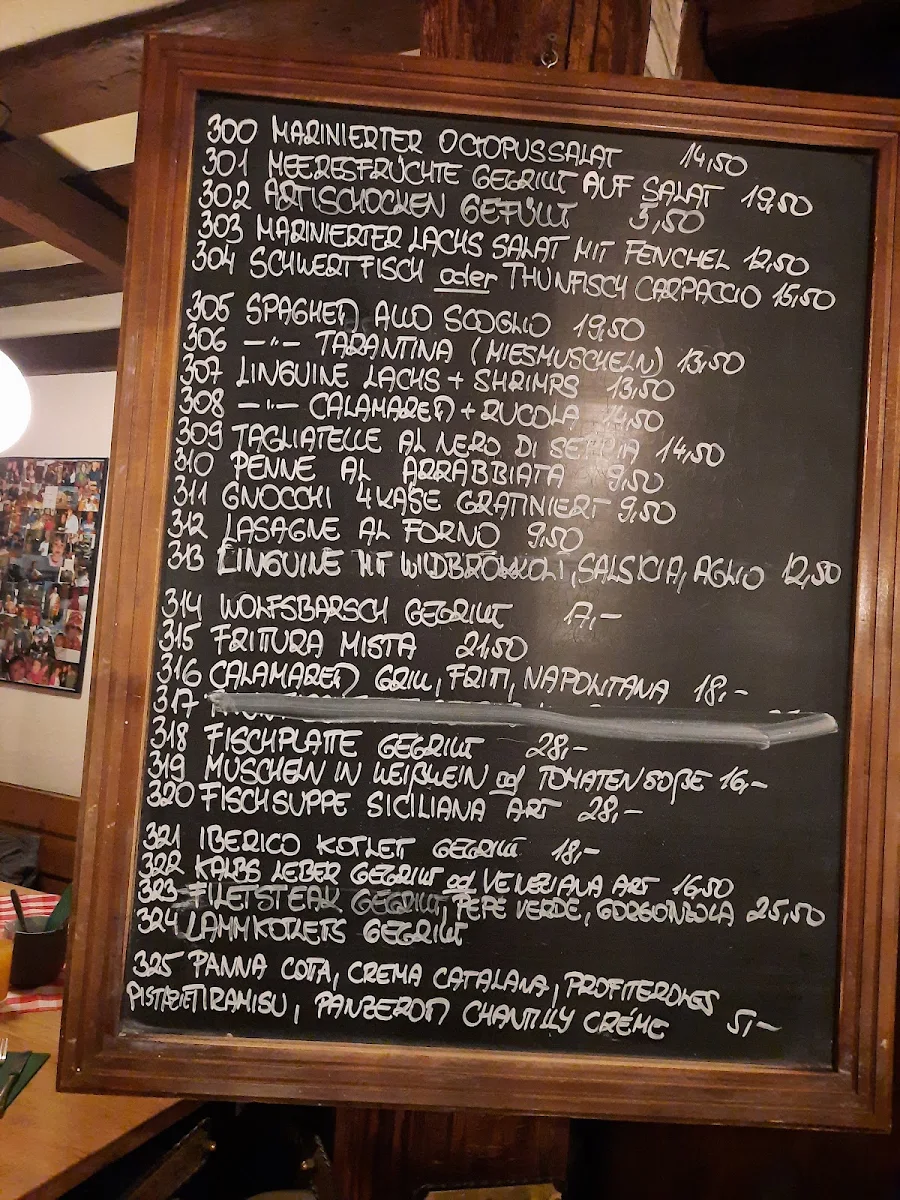 300 MARINIERTER OCTOPUSSALAT 14,50
301 MEERESFRÜCHTE GEGRILLT AUF SALAT 19,50
302 ARTISCHOCKEN GEFÜLLT 3,50
303 MARINIERTER LACHS SALAT MIT FENCHEL 12,50
304 SCHWERTFISCH oder THUNFISCH CARPACCIO 15,50
305 SPAGHETTI ALLO SCOGLIO 19,50
306 —"— TARANTINA (MIESMUSCHELN) 13,50
307 LINGUINE LACHS + SHRIMPS 13,50
308 —"— CALAMARETTI + RUCOLA 14,50
309 TAGLIATELLE AL NERO DI SEPPIA 14,50
310 PENNE AL ARRABBIATA 9,50
311 GNOCCHI 4 KÄSE GRATINIERT 9,50
312 LASAGNE AL FORNO 9,50
313 LINGUINE MIT WILDBROKKOLI, SALSICIA, AGLIO 12,50
314 WOLFSBARSCH GEGRILLT 17,-
315 FRITTURA MISTA 21,50
316 CALAMARETTI GRILL, FRITTI, NAPOLITANA 18,-
317
318 FISCHPLATTE GEGRILLT 28,-
319 MUSCHELN IN WEIßWEIN od TOMATENSOßE 16,-
320 FISCHSUPPE SICILIANA ART 28,-
321 IBERICO KOTLET GEGRILLT 18,-
322 KALBS LEBER GEGRILLT od VENEZIANA ART 16,50
323 FILETSTEAK GEGRILLT, PEPE VERDE, GORGONZOLA 25,50
324 LAMMKOTLETS GEGRILLT
325 PANNA COTTA, CREMA CATALANA, PROFITEROLES
TIRAMISU, PANZEROTTI CHANTILLY CRÉME 5,-